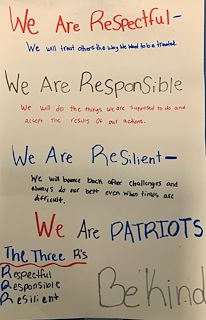 We Are Respectful-
We will treat others the way we want to be treated.
We Are Responsible
We will do the things we are supposed to do and
accept the results of our actions.
We Are Resilient-
We will bounce back after challenges and
always do our best even when times are
difficult.
We Are PATRIOTS
The Three R's
Respectful
Responsible
Resilient
Be Kind